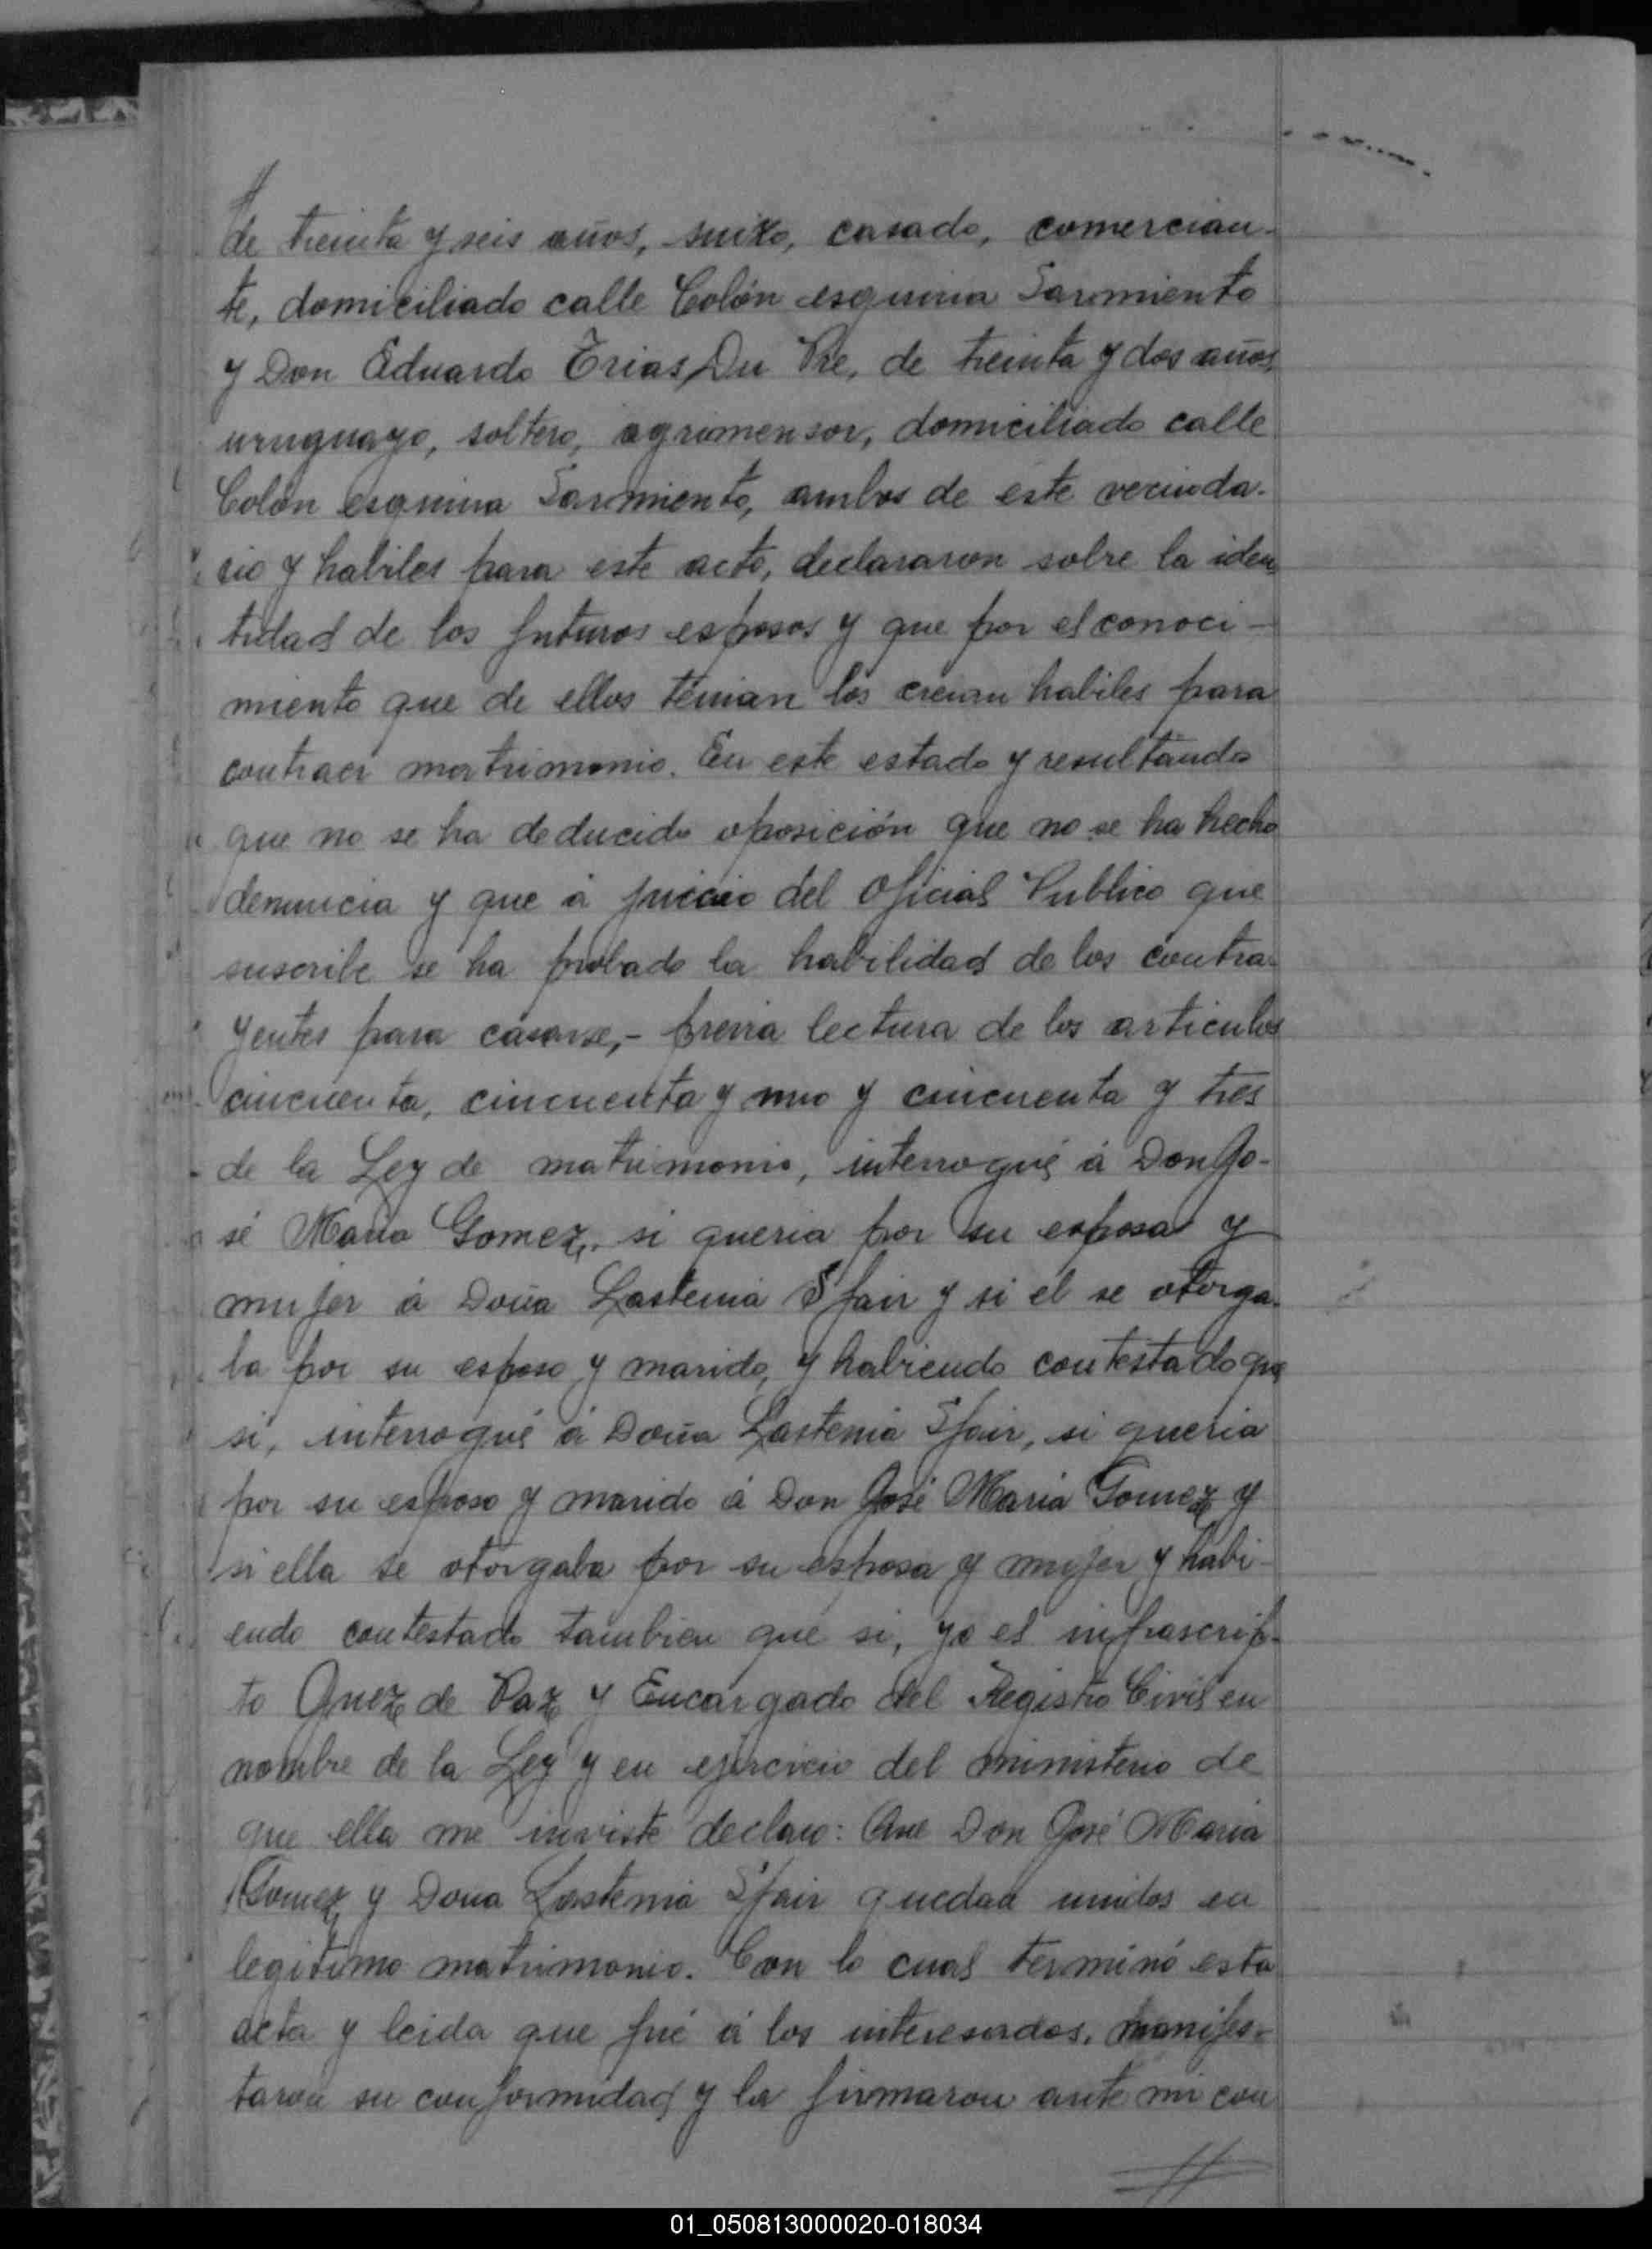 de treinta y seis años, suizo, casado, comercian-
te, domiciliado calle Colón esquina Sarmiento
y Don Eduardo Trias Du Pre, de treinta y dos años,
uruguayo, soltero, agrimensor, domiciliado calle
Colón esquina Sarmiento, ambos de este vecinda-
rio y habiles para este acto, declararon sobre la iden
tidad de los futuros esposos y que por el conoci-
miento que de ellos tenian los creian habiles para
contraer matrimonio. En este estado y resultando
que no se ha deducido oposición que no se ha hecho
denuncia y que á juicio del Oficial Publico que
suscribe se ha probado la habilidad de los contra-
yentes para casarse,- previa lectura de los articulos
cincuenta, cincuenta y uno y cincuenta y tres
de la Ley de matrimonio, interrogué á Don Jo-
sé Maria Gomez, si queria por su esposa y
mujer á Doña Lastenia Sfair y si él se otorga-
ba por su esposo y marido, y habiendo contestado que
si, interrogué á Doña Lastenia Sfair, si queria
por su esposo y marido á Don José Maria Gomez y
si ella se otorgaba por su esposa y mujer y habi-
endo contestado tambien que si, yo el infrascrip-
to Juez de Paz y Encargado del Registro Civil en
nombre de la Ley y en ejercicio del ministerio de
que ella me inviste declaro: Que Don José Maria
Gomez y Doña Lastenia Sfair quedan unidos en
legitimo matrimonio. Con lo cual terminó esta
acta y leida que fué á los interesados, manifes-
taron su conformidad y la firmaron ante mi con
01_050813000020-018034